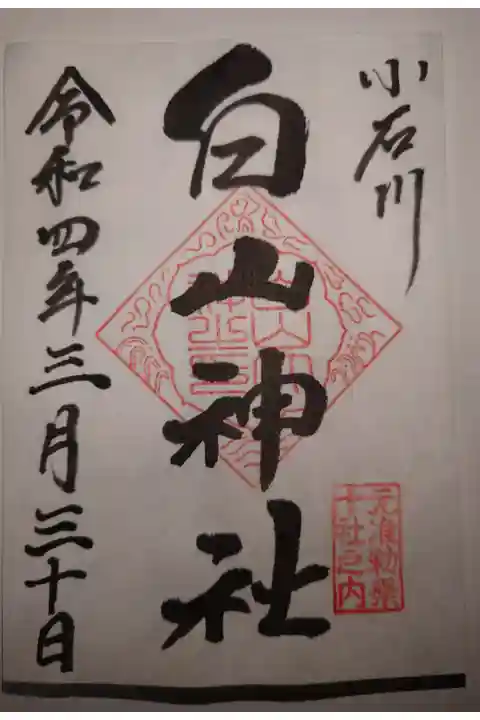 小石川
白山神社
元准勅祭
十社之内
令和四年三月三十日